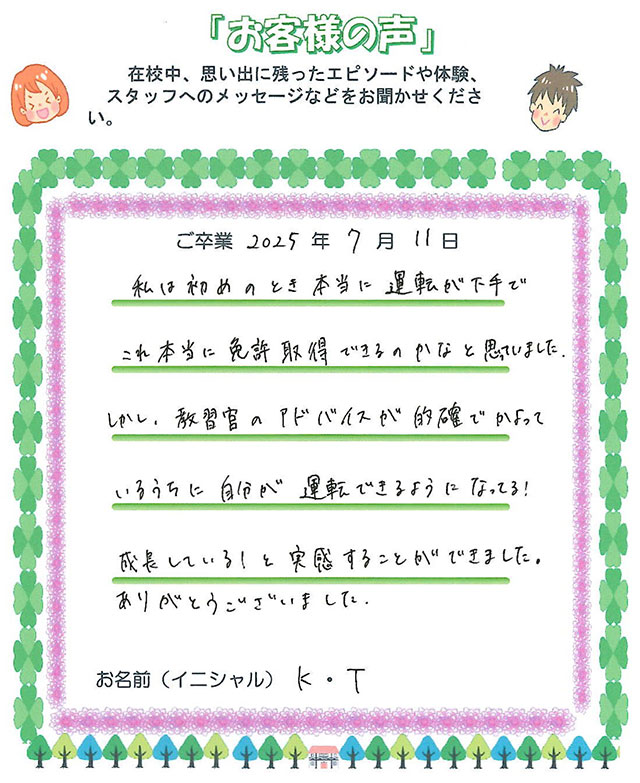 「お客様の声」
在校中、思い出に残ったエピソードや体験、
スタッフへのメッセージなどをお聞かせくださ
い。
ご卒業 2025 年 7 月 11 日
私は初めのとき本当に運転が下手で
これ本当に免許取得できるのかなと思っていました。
しかし、教習官のアドバイスが的確でかよって
いるうちに自分が運転できるようになってる!
成長している!と実感することができました。
ありがとうございました。
お名前（イニシャル） K・T